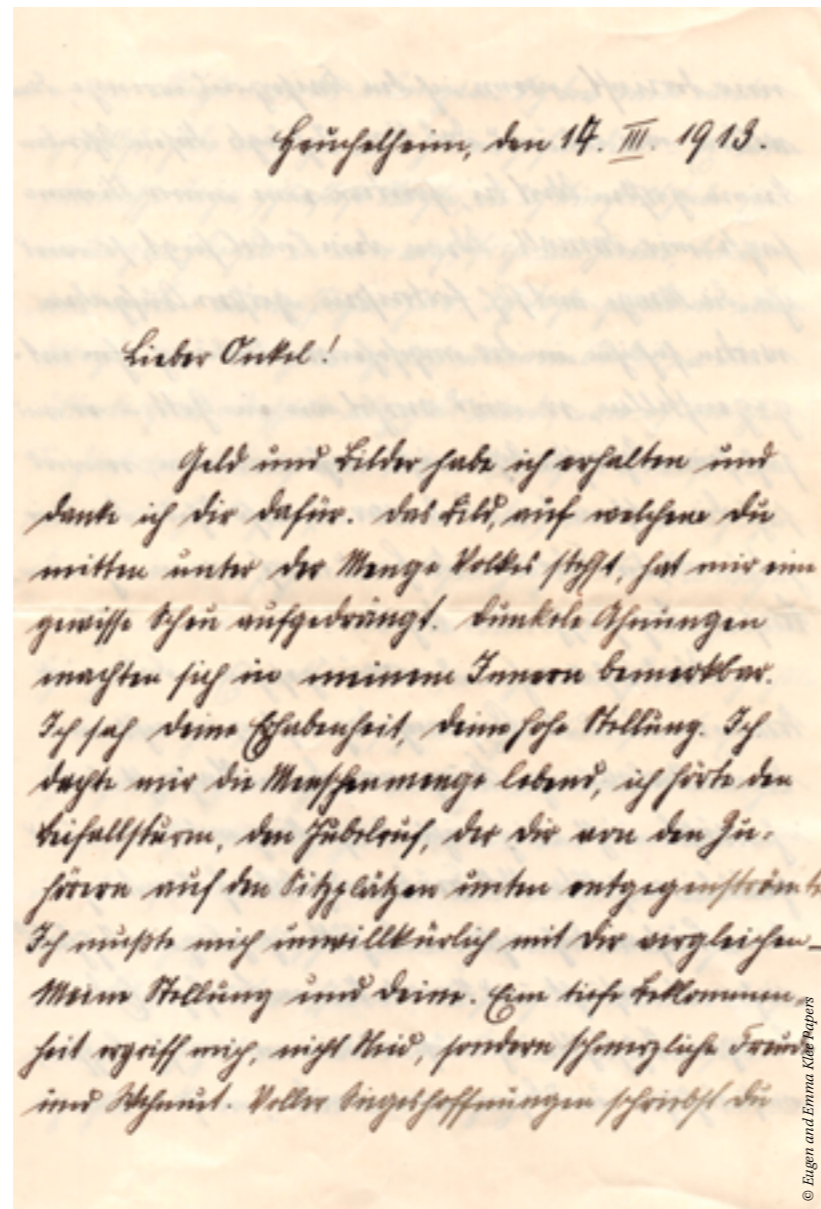 Heuchelheim, den 14. III. 1913.
Lieber Onkel!
Geld und Bilder habe ich erhalten und
danke ich Dir dafür. Das Bild, auf welchem Du
mitten unter der Menge Volkes stehst, hat mir eine
gewisse Scheu aufgedrängt. Dunkele Ahnungen
machten sich in meinem Innern bemerkbar.
Ich sah Deine Erhabenheit, Deine hohe Stellung. Ich
dachte mir die Menschenmenge lebend, ich hörte den
Beifallsturm, den Jubelruf, der Dir von den Zu-
hörern auf den Sitzplätzen unten entgegenströmte
Ich mußte mich unwillkürlich mit Dir vergleichen –
Meine Stellung und Deine. Eine tiefe Beklommen-
heit ergriff mich, nicht Neid, sondern schmerzliche Freude
und Wehmut. Voller Siegeshoffnungen schriebst Du
© Eugen and Emma Klee Papers